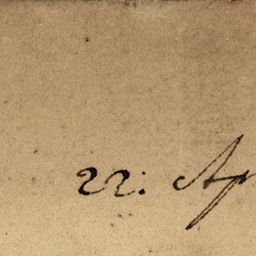 22. Ap